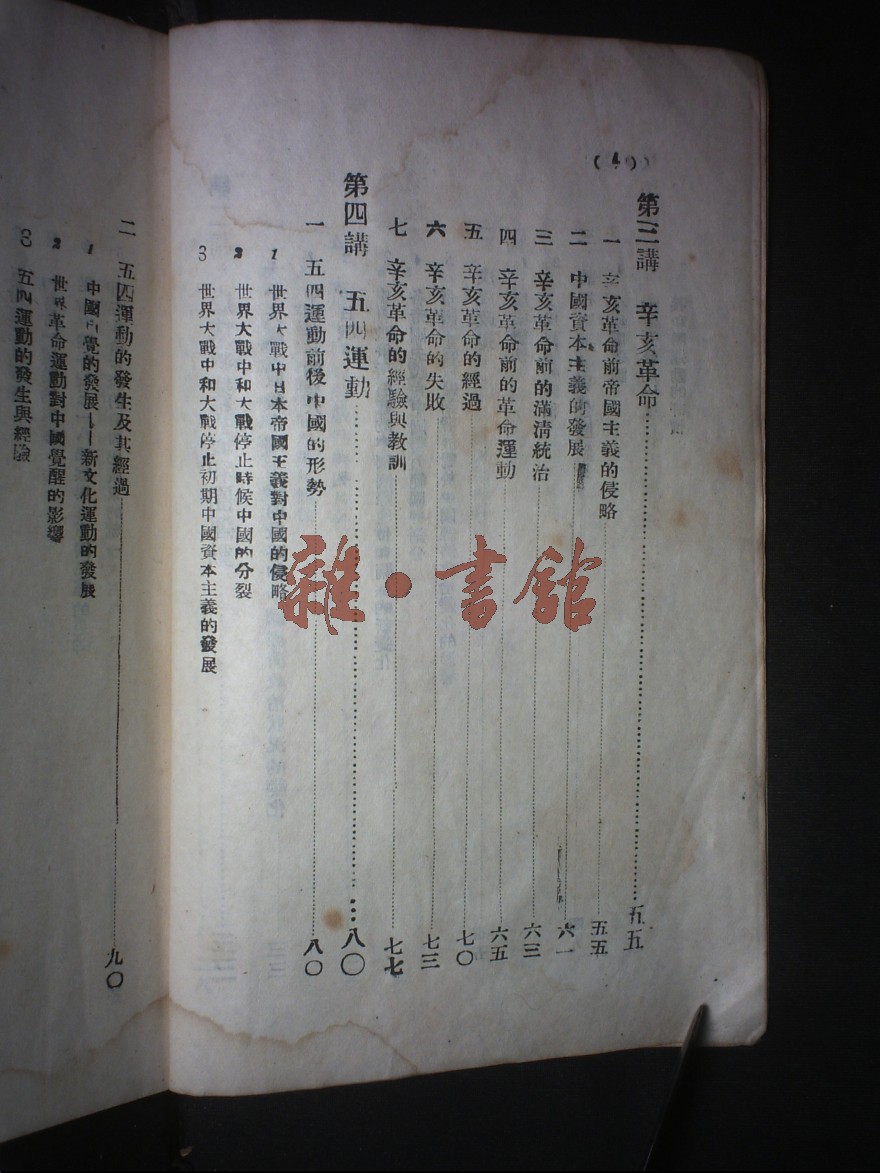 第三講　辛亥革命……五五
一　辛亥革命前帝國主義的侵略……五五
二　中國資本主義的發展……六一
三　辛亥革命前的滿清統治……六三
四　辛亥革命前的革命運動……六五
五　辛亥革命的經過……七〇
六　辛亥革命的失敗……七三
七　辛亥革命的經驗與教訓……七七
第四講　五四運動……八〇
一　五四運動前後中國的形勢……八〇
1　世界大戰中日本帝國主義對中國的侵略
2　世界大戰中和大戰停止時候中國的分裂
3　世界大戰中和大戰停止初期中國資本主義的發展
二　五四運動的發生及其經過……九〇
1　中國自覺的發展——新文化運動的發展
2　世界革命運動對中國覺醒的影響
3　五四運動的發生與經驗
雜·書館